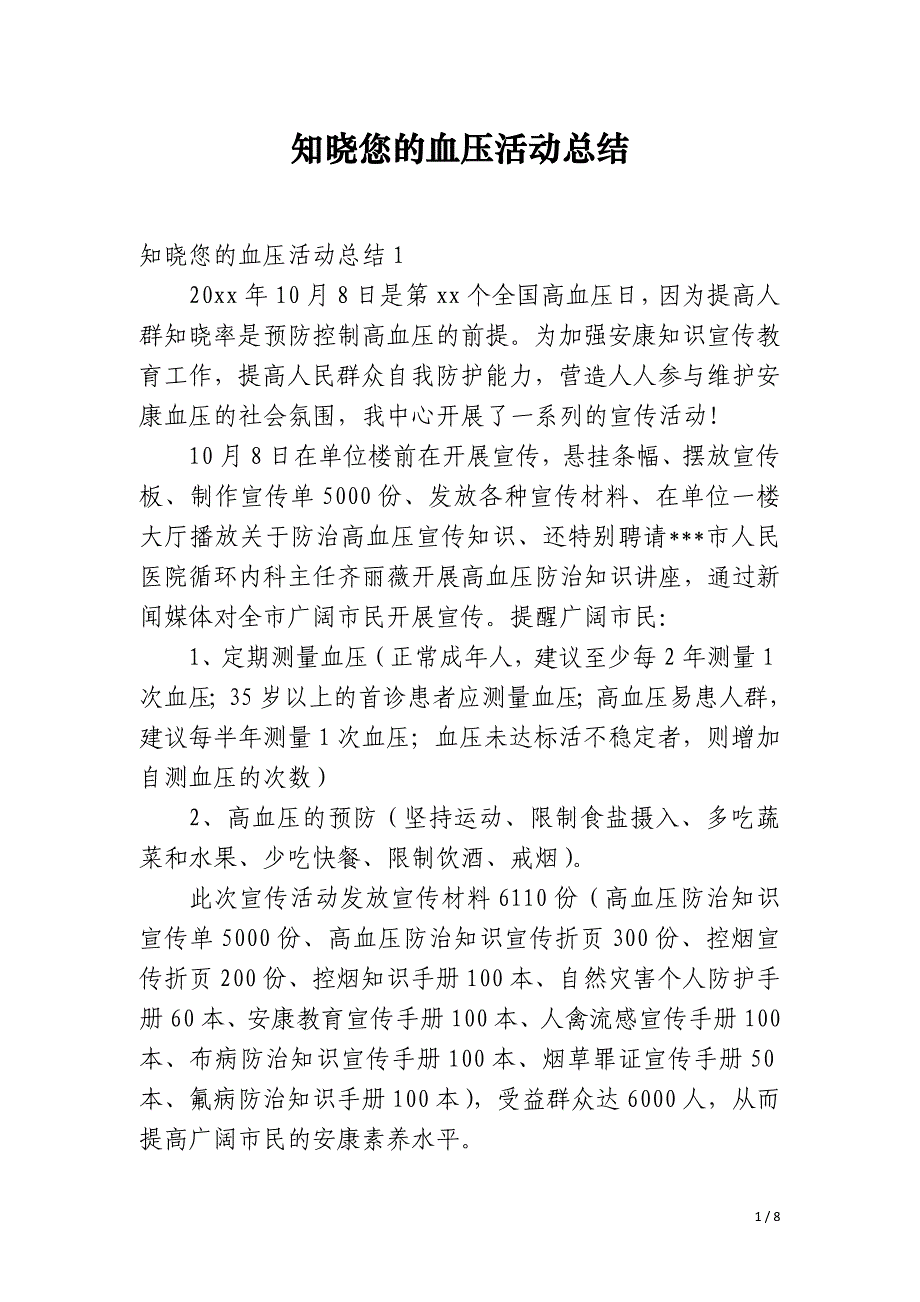 知晓您的血压活动总结
知晓您的血压活动总结1
20xx年10月8日是第xx个全国高血压日，因为提高人
群知晓率是预防控制高血压的前提。为加强安康知识宣传教
育工作，提高人民群众自我防护能力，营造人人参与维护安
康血压的社会氛围，我中心开展了一系列的宣传活动！
10月8日在单位楼前在开展宣传，悬挂条幅、摆放宣传
板、制作宣传单5000份、发放各种宣传材料、在单位一楼
大厅播放关于防治高血压宣传知识、还特别聘请***市人民
医院循环内科主任齐丽薇开展高血压防治知识讲座，通过新
闻媒体对全市广阔市民开展宣传。提醒广阔市民：
1、定期测量血压（正常成年人，建议至少每2年测量1
次血压；35岁以上的首诊患者应测量血压；高血压易患人群，
建议每半年测量1次血压；血压未达标活不稳定者，则增加
自测血压的次数）
2、高血压的预防（坚持运动、限制食盐摄入、多吃蔬
菜和水果、少吃快餐、限制饮酒、戒烟）。
此次宣传活动发放宣传材料6110份（高血压防治知识
宣传单5000份、高血压防治知识宣传折页300份、控烟宣
传折页200份、控烟知识手册100本、自然灾害个人防护手
册60本、安康教育宣传手册100本、人禽流感宣传手册100
本、布病防治知识宣传手册100本、烟草罪证宣传手册50
本、氟病防治知识手册100本），受益群众达6000人，从而
提高广阔市民的安康素养水平。
1 / 8